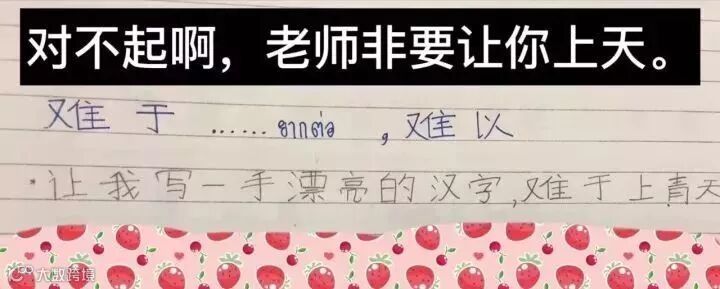 对不起啊，老师非要让你上天。
难于……ยากต่อ，难以
·让我写一手漂亮的汉字，难于上青天
大数跨境